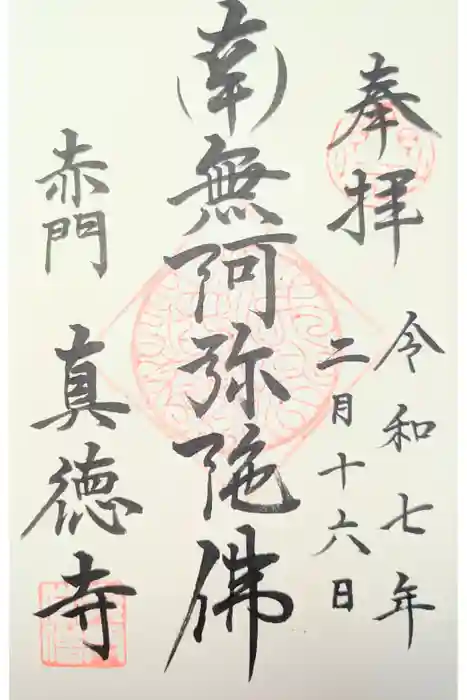 奉拝
令和七年
二月十六日
南無阿弥陀佛
赤門
真徳寺